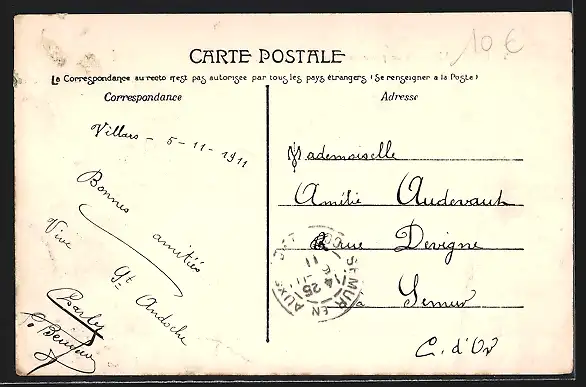 10 €
CARTE POSTALE
La Correspondance au recto n'est pas autorisée par tous les pays étrangers (Se renseigner à la Poste)
Correspondance
Adresse
Villars - 5-11-1911
Bonnes amitiés
Vive St Andoche
Charles
Mademoiselle
Amélie Audevaut
rue Devigne
à Semur
C. d'Or
SEMUR EN AUXOIS